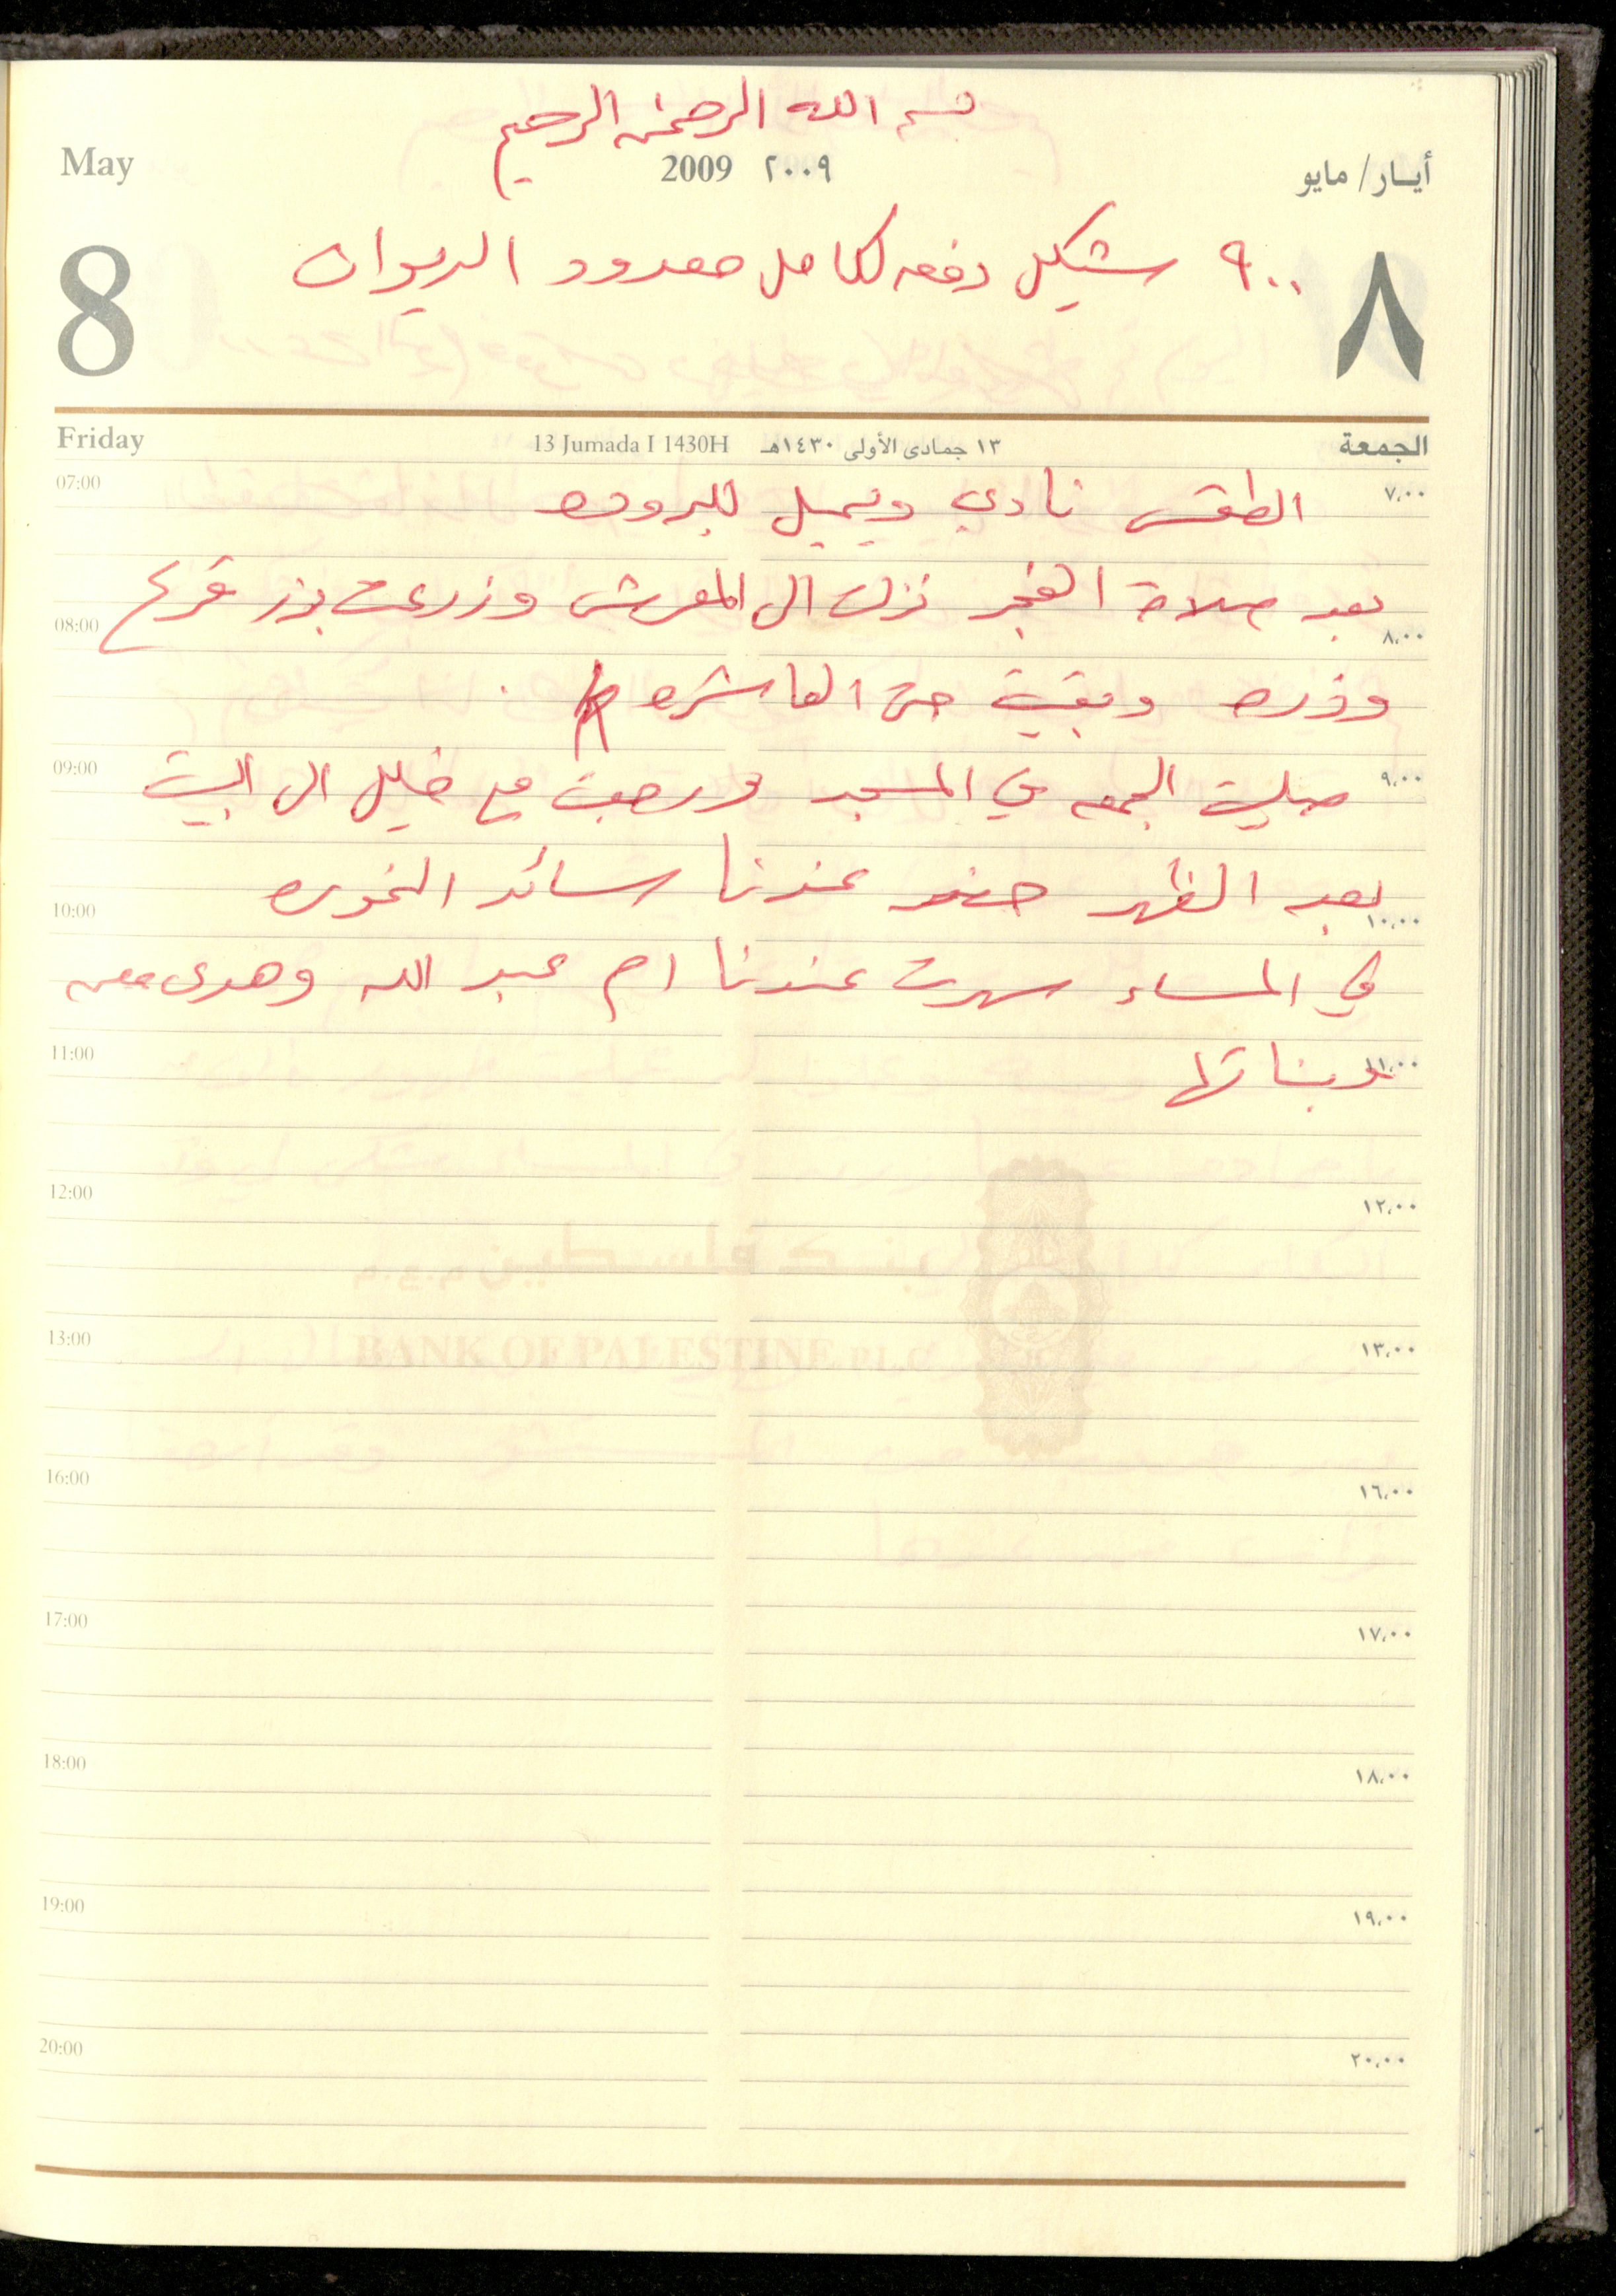 بسم الله الرحمن الرحيم
May 2009 ٢٠٠٩ أيــار/ مايو
٩٠٠ شيكل دفعه لكامل معدود الديوان
8 ٨
Friday 13 Jumada I 1430H ١٣ جمادى الأولى ١٤٣٠هـ الجمعة
07:00 ٧,٠٠
الطقس نادي ويميل للبروده
بعد صلاة الفجر نزلت الى المعرش وزرعت بذر قرع
08:00 ٨,٠٠
وذره وبقيت حتى العاشره
09:00 ٩,٠٠
صليت الجمعه في المسجد ورجعت مع خليل الى البيت
بعد الظهر حضر عندنا سائد
10:00 ١٠,٠٠
في المساء سهرت عندنا ام عبد الله وهدى
11:00 ١١,٠٠
وبناتها
12:00 ١٢,٠٠
بنك فلسطين م.ع.م
13:00 ١٣,٠٠
BANK OF PALESTINE PLC
16:00 ١٦,٠٠
17:00 ١٧,٠٠
18:00 ١٨,٠٠
19:00 ١٩,٠٠
20:00 ٢٠,٠٠